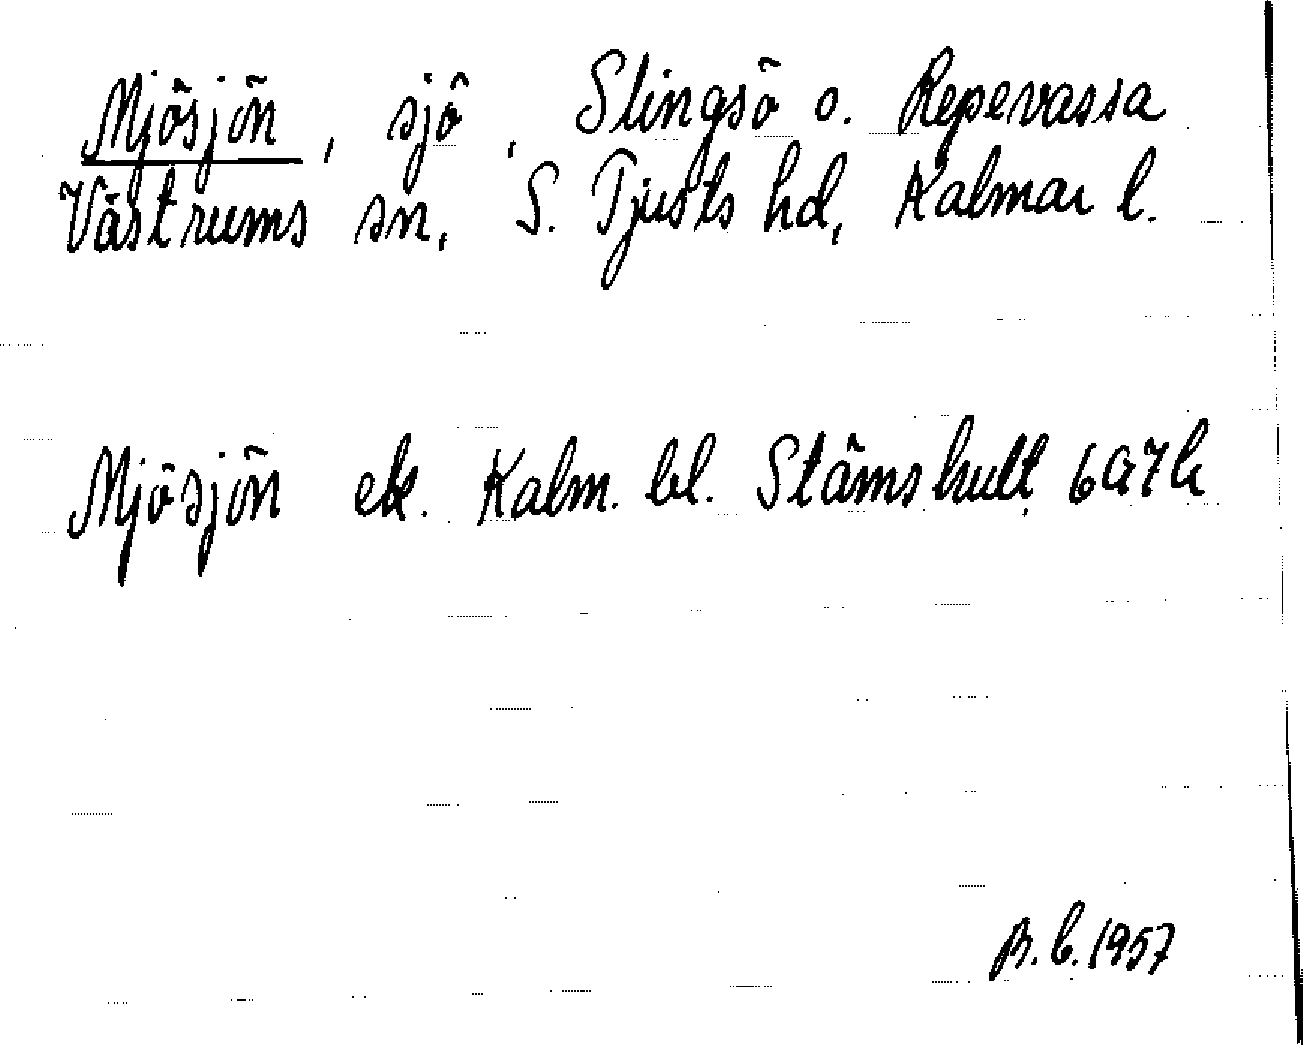 Mjösjön, sjö, Slingsö o. Repevassa
Västrums sn, S. Tjusts hd, Kalmar l.
Mjösjön ek. Kalm. bl. Stämshult 6G7h
B.b.1957